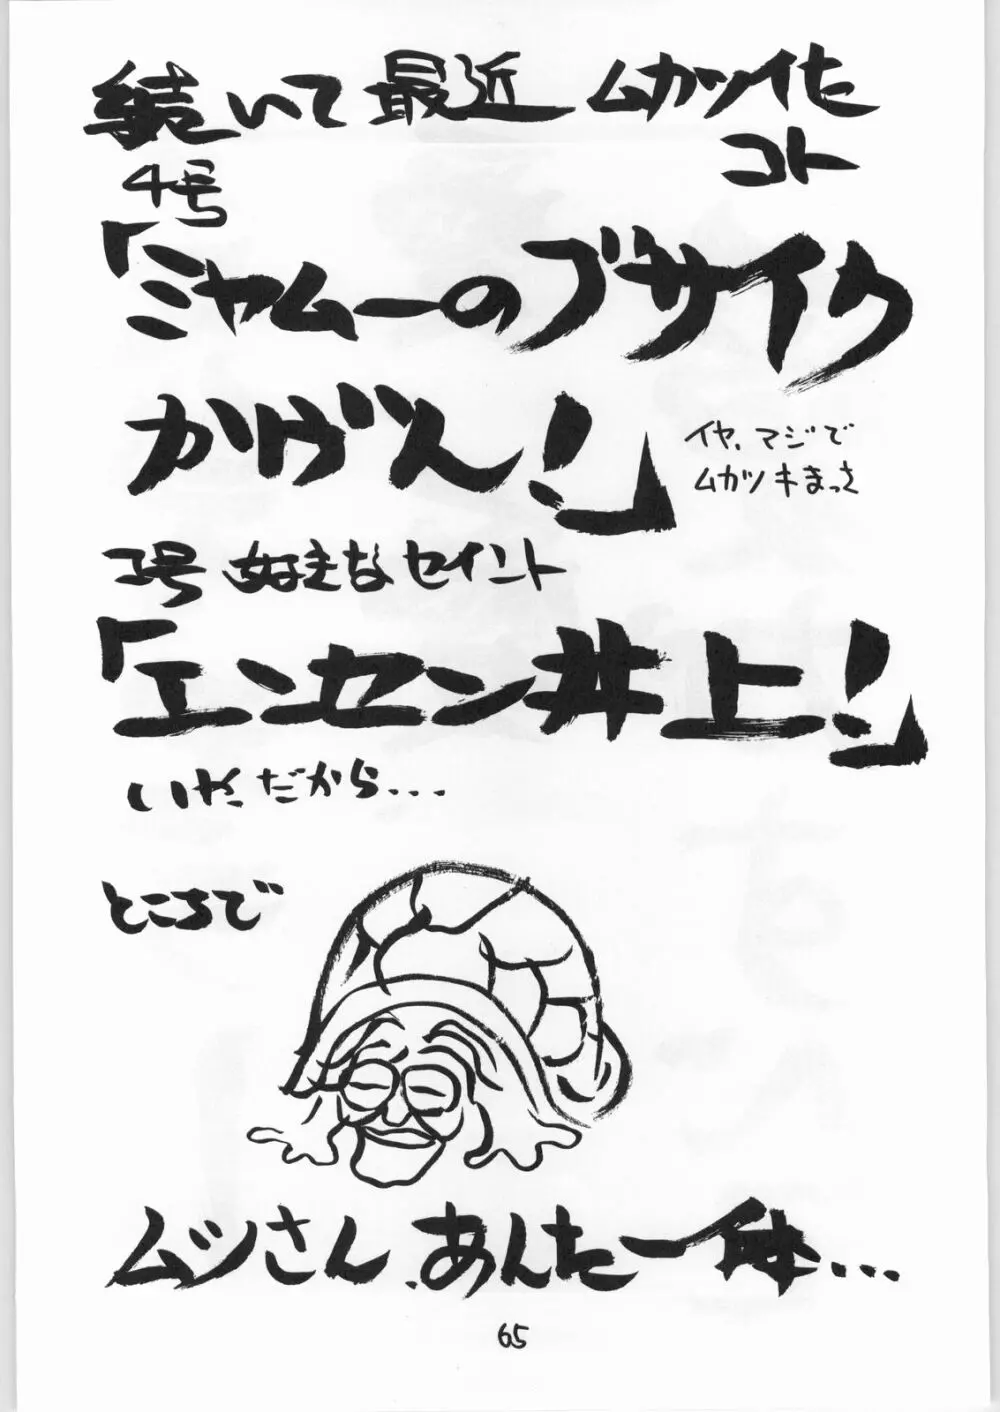 続いて最近ムカツイた
コト
4号
「ミヤムーのブサイク
かげん!」
イヤ、マジで
ムカツキまっさ
3号 好きなセイント
「エンセン井上!」
いや、だから...
ところで
ムツさん、あんた一体...
65